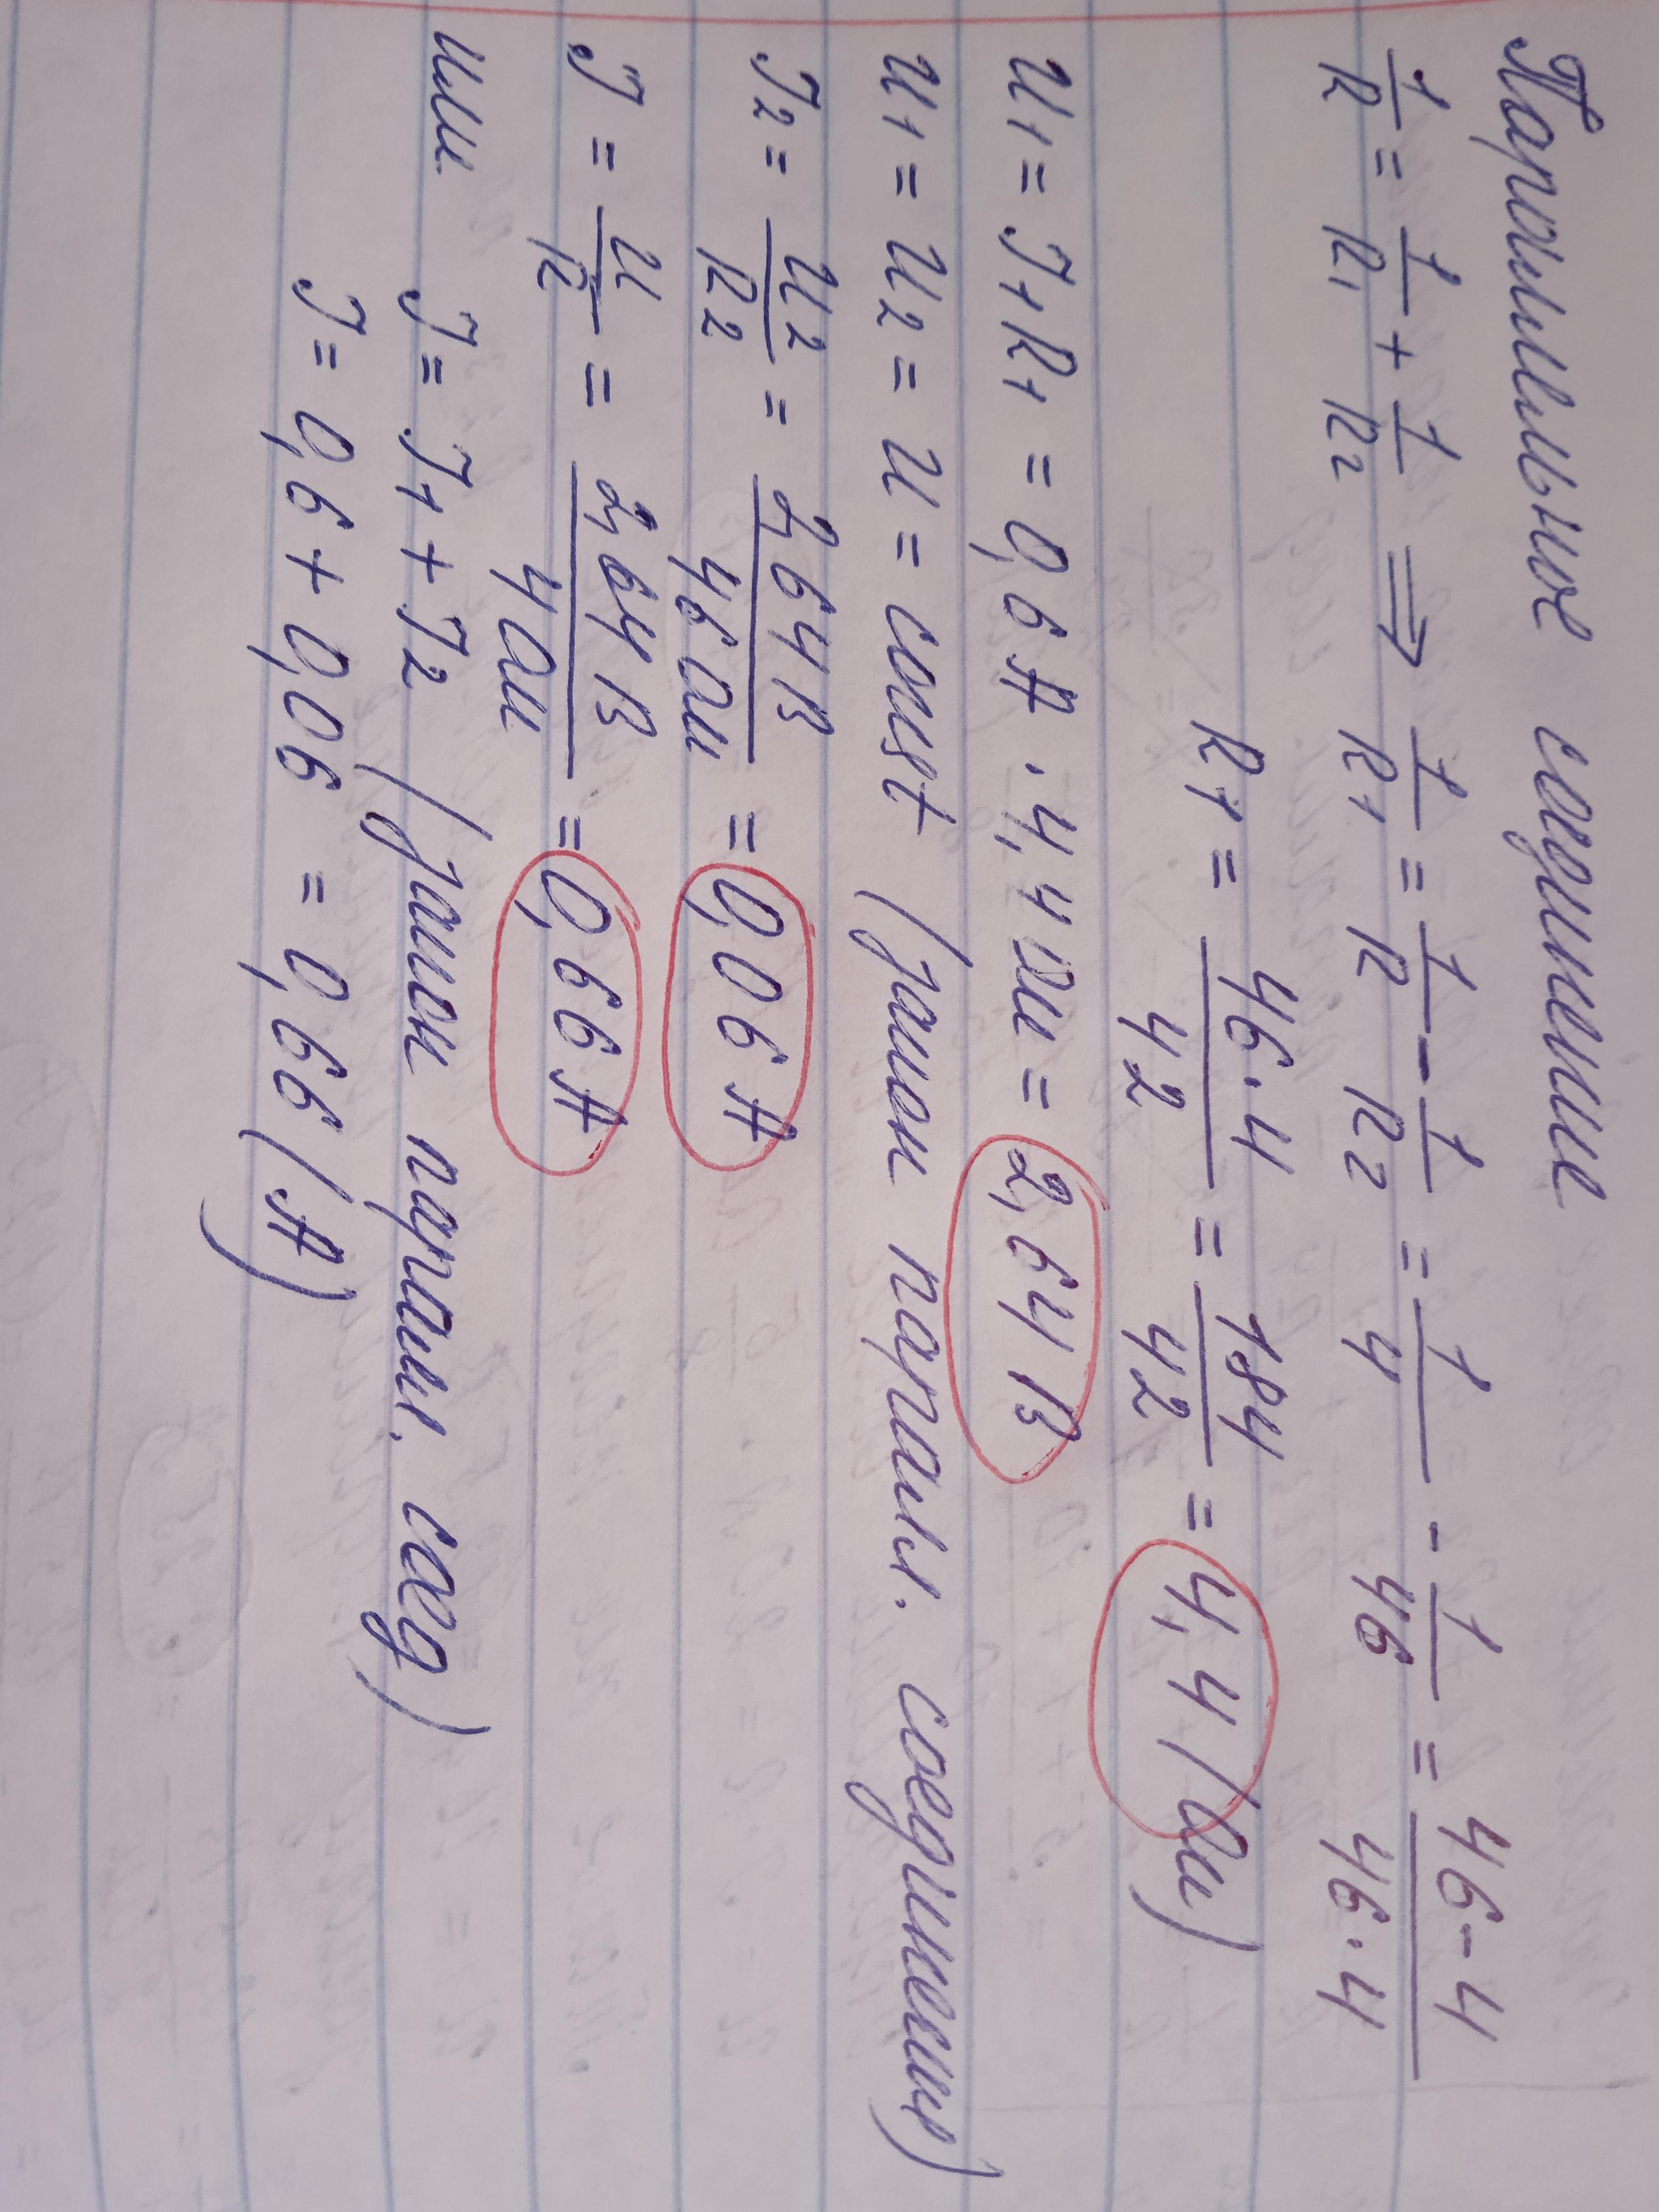 Параллельное соединение
1/R = 1/R1 + 1/R2 ⟹ 1/R1 = 1/R - 1/R2 = 1/4 - 1/46 = (46-4)/(46·4)
R1 = (46·4)/42 = 184/42 = 4,4 (Ом)
U1 = I1R1 = 0,6 А · 4,4 Ом = 2,64 В
U1 = U2 = U = const (закон паралл. соединения)
I2 = U2/R2 = 2,64 В/46 Ом = 0,06 А
I = U/R = 2,64 В/4 Ом = 0,66 А
или I = I1 + I2 (закон паралл. соед)
I = 0,6 + 0,06 = 0,66 (А)